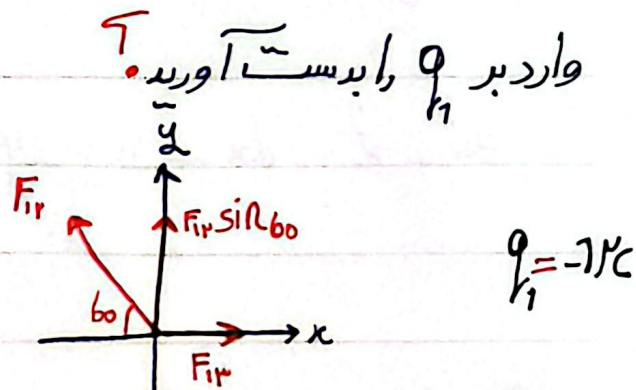 وارد بر q₁ را بدست آورید؟
y
F₁₂
F₁₂ sin 60
60
x
F₁₃
q₁ = -1μc